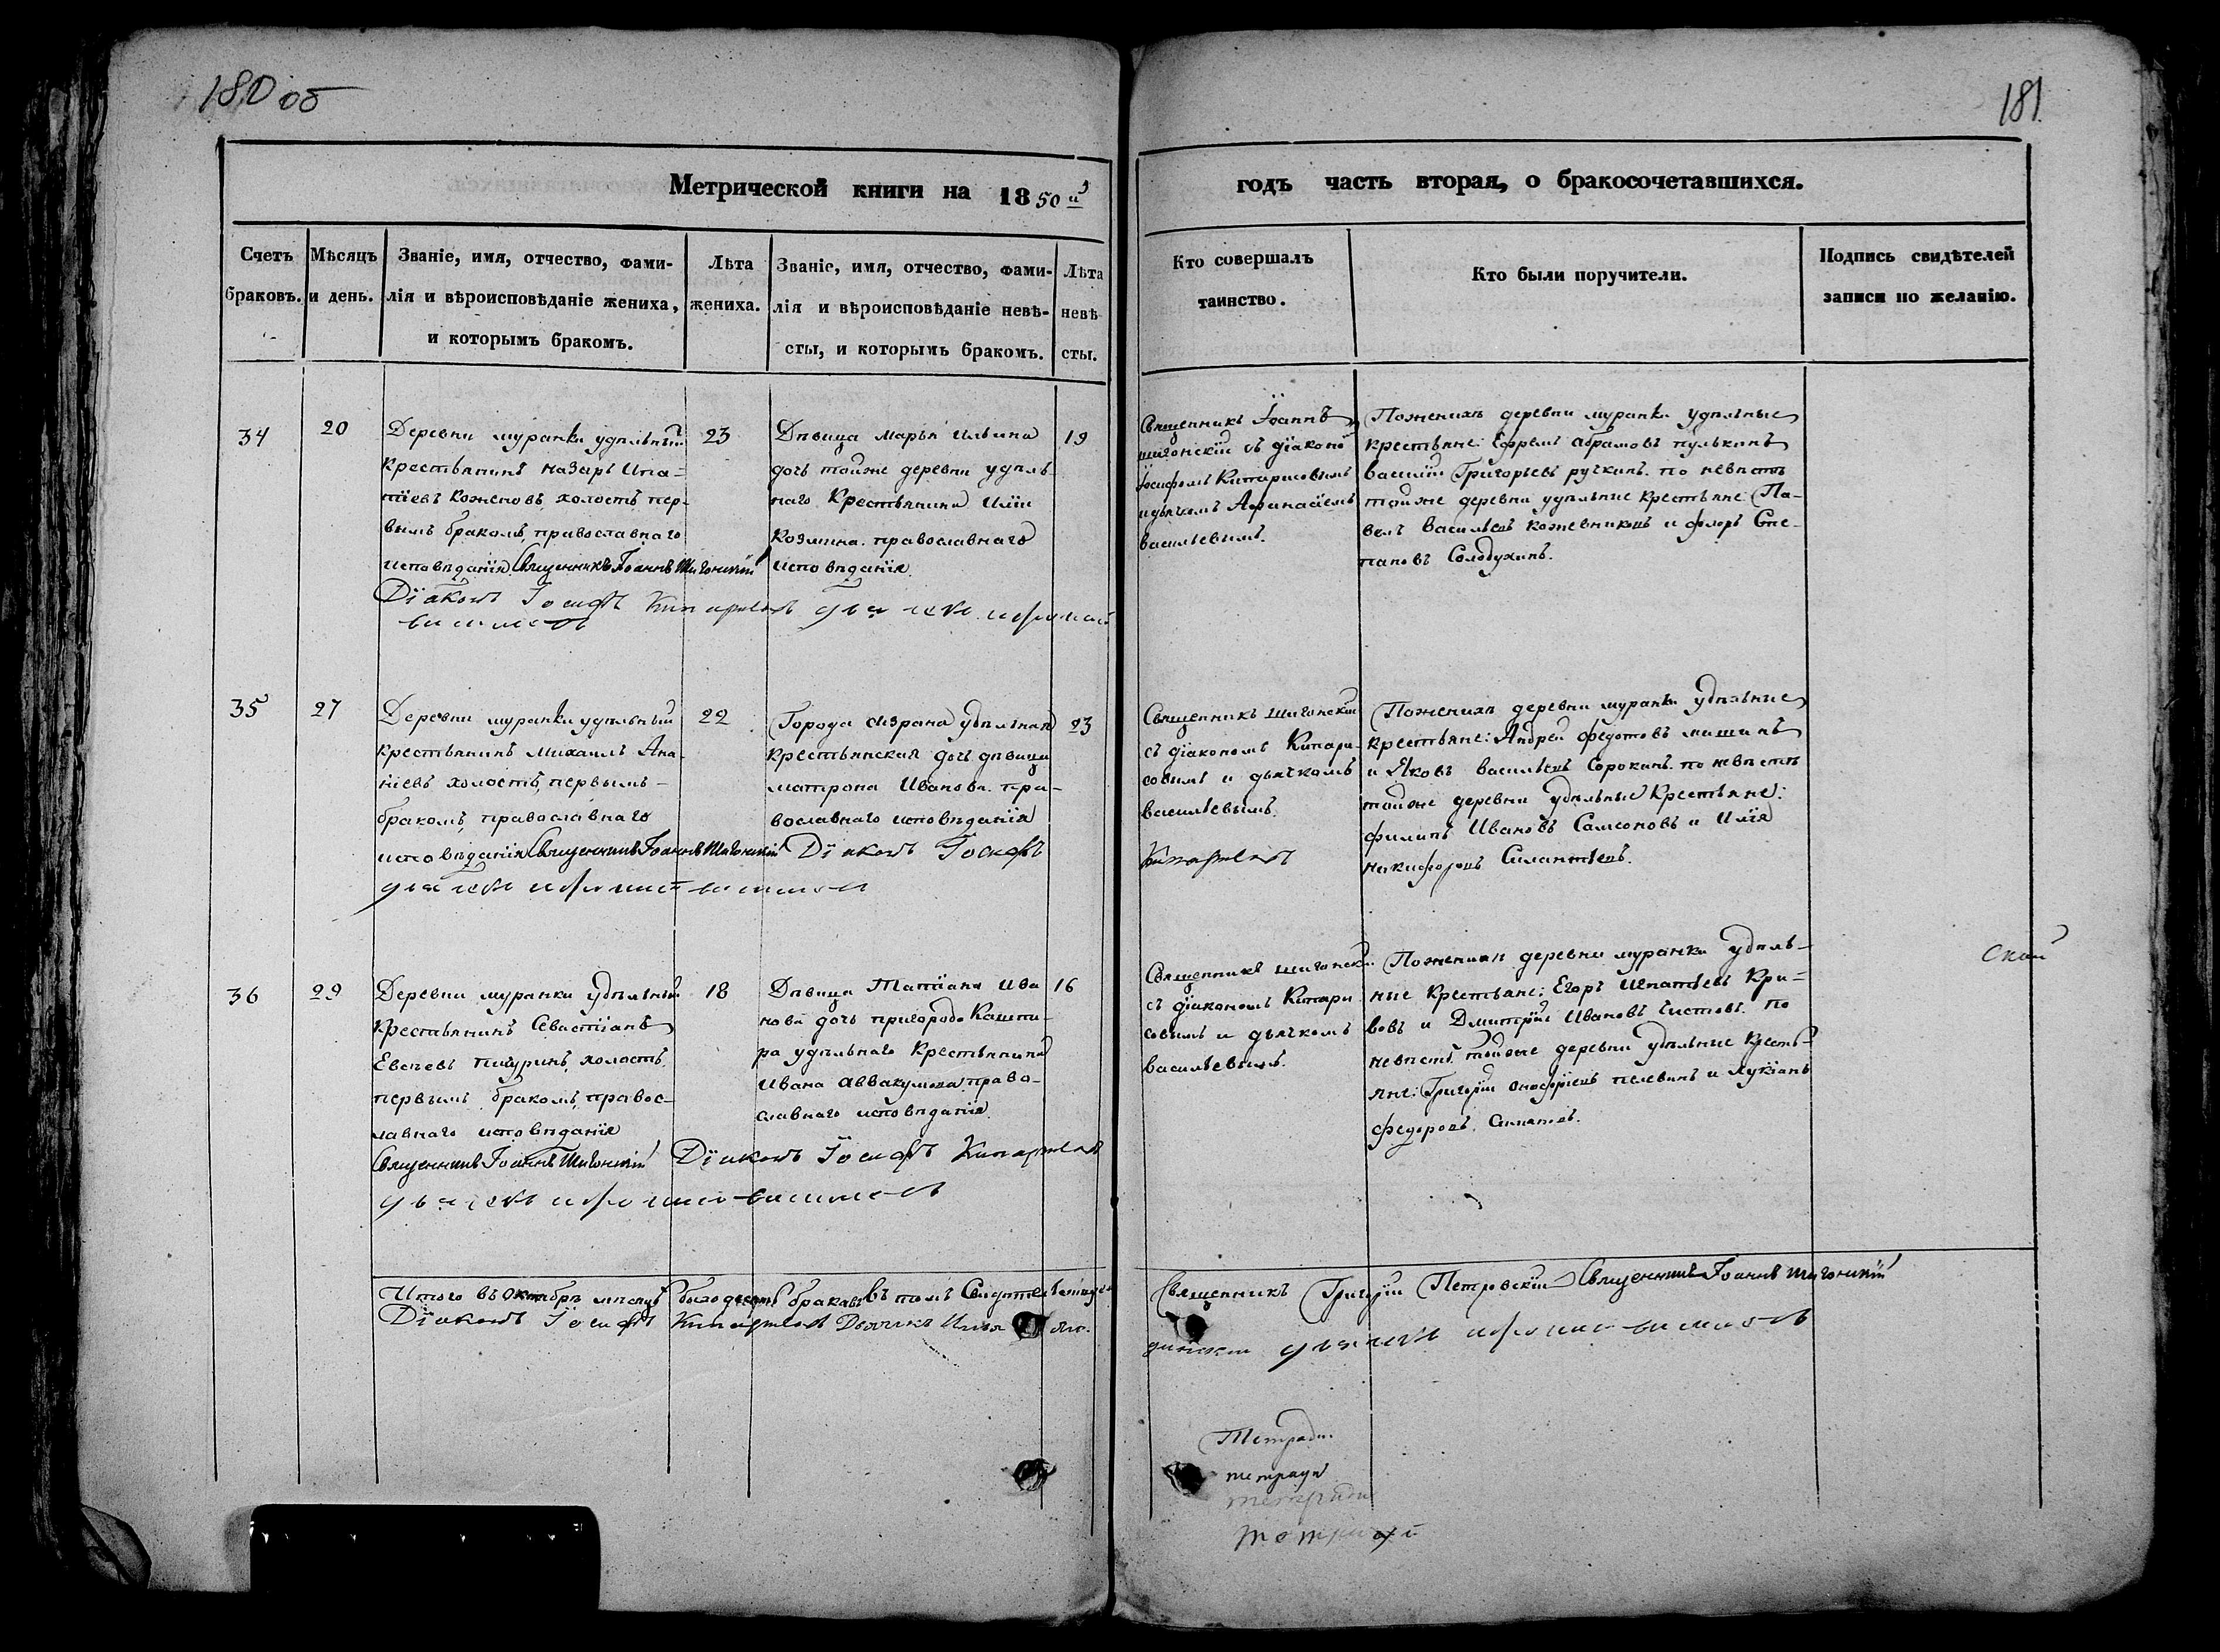 180 об
181
Метрической книги на 1850й
годъ часть вторая, о бракосочетавшихся.
Счетъ
браковъ.
Мѣсяцъ
и день.
Званіе, имя, отчество, фами-
лія и вѣроисповѣданіе жениха,
и которымъ бракомъ.
Лѣта
жениха.
Званіе, имя, отчество, фами-
лія и вѣроисповѣданіе невѣ-
сты, и которымъ бракомъ.
Лѣта
невѣ
сты.
Кто совершалъ
таинство.
Кто были поручители.
Подпись свидѣтелей
записи по желанію.
34
20
Деревни муранки удѣльный
крестьянинъ назаръ Ипа=
тіевъ холостъ, пер-
вымъ бракомъ, православнаго
исповѣданія. Священникъ Іоаннъ Шигонскій
23
Дѣвица Марья Ильина
дочь тойже деревни удѣль
наго Крестьянина Иліи
Козмина. православнаго
исповѣданія.
19
Діаконъ Іосифъ Кипарисовъ
Священникъ Іоаннъ
шигонскій съ діакономъ
Іосифомъ Кипарисовымъ
и дьячкомъ Афанасіемъ
васильевымъ.
По женихѣ деревни муранки удѣльные
крестьяне: Ефремъ абрамовъ пулькинъ
василій Григорьевъ ручкинъ. по невѣстѣ
тойже деревни удѣльные крестьяне: Па-
велъ васильевъ кожевниковъ и флоръ Сте-
пановъ Солодухинъ.
35
27
Деревни муранки удѣльный
крестьянинъ михаилъ Ана
ніевъ холостъ, первымъ-
бракомъ, православнаго
исповѣданія Священникъ Іоаннъ Шигонскій
22
Города сызрана удѣльная
крестьянская дочь дѣвица
матрона Иванова. пра-
вославнаго исповѣданія
23
Діаконъ Іосифъ
Кипарисовъ
Священникъ шигонскій
съ діакономъ Кипари
совымъ и дьячкомъ
васильевымъ.
По женихѣ деревни муранки удѣльные
крестьяне: Андрей федотовъ мишинъ
и Яковъ васильевъ Сорокинъ. по невѣстѣ
тойже деревни удѣльные крестьяне:
филипъ Ивановъ Самсоновъ и Илія
никифоровъ Силантьевъ.
36
29
Деревни муранки удѣльный
крестьянинъ Севастіанъ
холостъ,
первымъ бракомъ, правос-
лавнаго исповѣданія
Священникъ Іоаннъ Шигонскій
18
Дѣвица Татіана Ива
нова дочь пригорода Кашпи-
ра удѣльнаго Крестьянина
Ивана аввакумова, право-
славнаго исповѣданія.
16
Діаконъ Іосифъ Кипарисовъ
Священникъ шигонскій
съ діакономъ Кипари
совымъ и дьячкомъ
васильевымъ.
По женихѣ деревни муранки удѣль-
ные крестьяне: Егоръ Игнатьевъ Кри=
вовъ и Дмитрій Ивановъ Чистовъ. По
невѣстѣ тойже деревни удѣльные кресть-
яне: Григорій пелевинъ и Лукіанъ
федоровъ
скій
Итого въ Октябрѣ мѣсяцѣ было десять браковъ въ томъ
Діаконъ Іосифъ Кипарисовъ Дьячекъ Илья
Священникъ Григорій Петровскій Священникъ Іоаннъ Шигонскій
Тетради
тетради
тетради
тетради